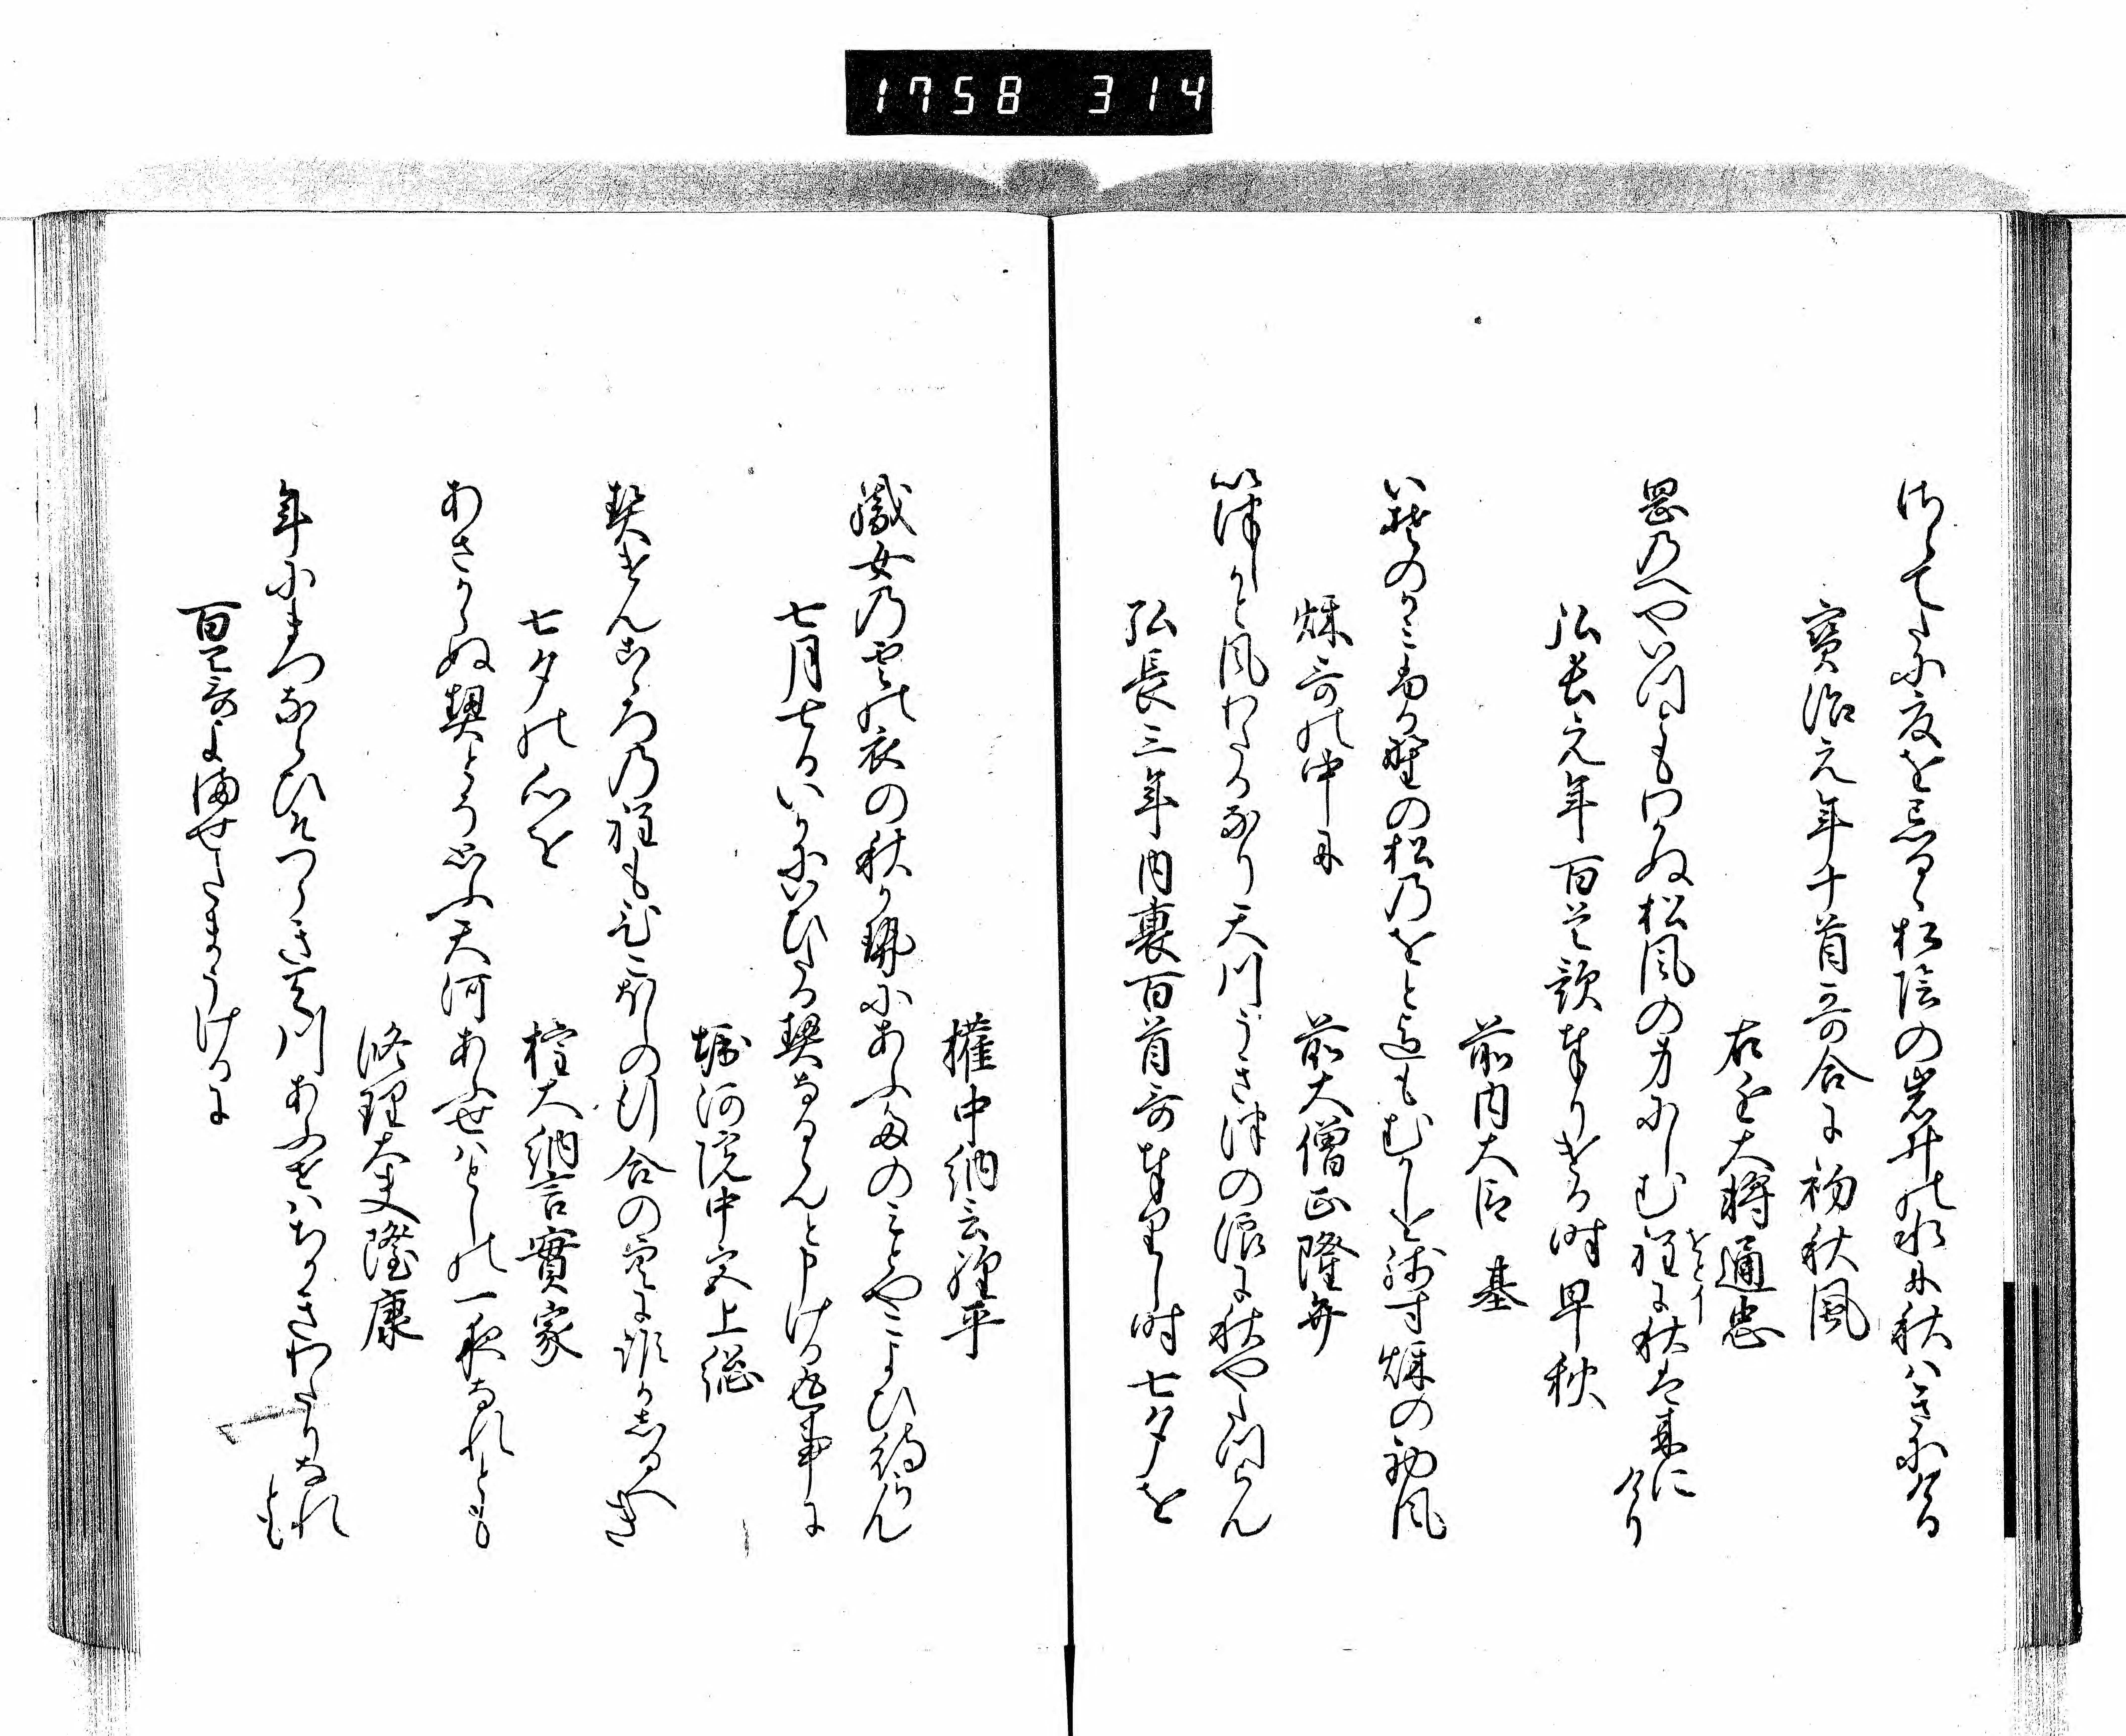 1758 314
けふてたに夏を忘るゝ松陰の岩井の水に秋はきにける
寶治元年十首哥合に初秋風
右近大将通忠
岡のへやいつともわかぬ松風の身にしむ程に秋は来にけり
をとイ
弘長元年百首歌奉りける時早秋
前内大臣 基
いその神ふる野の松のをとまてもむかしを残す秌の初風
秌哥の中に
前大僧正隆弁
いつしかと風わたるなり天川うきつの浪に秋やたつらん
弘長三年内裏百首哥奉りし時七夕を
權中納言經平
織女の雲の衣の秋風にあふ夜のみとやこよひ待らん
七月七日いかにいひたる契なるらんと申ける返事に
堀河院中宮上総
契けんこゝろの程もひこほしの行合の空に誰かしるへき
七夕の心を
權大納言實家
あさからぬ契とそ思ふ天河あふせはとしの一夜なれとも
修理大夫隆康
年にまつならひそつらき天川あふせはちかきわたりなれとも
百首哥よませたまうけるに